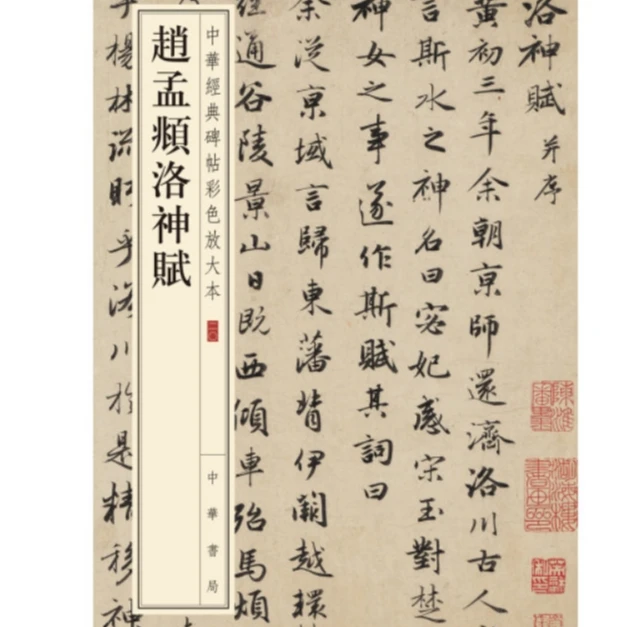 洛神賦 并序
黄初三年余朝京師還濟洛川古人
言斯水之神名曰宓妃感宋玉對楚
神女之事遂作斯賦其詞曰
余從京域言歸東藩背伊闕越轘
經通谷陵景山日既西傾車殆馬煩
中華經典碑帖彩色放大本 二〇
中華書局
趙孟頫洛神賦
乎楊林流眄乎洛川於是精移神